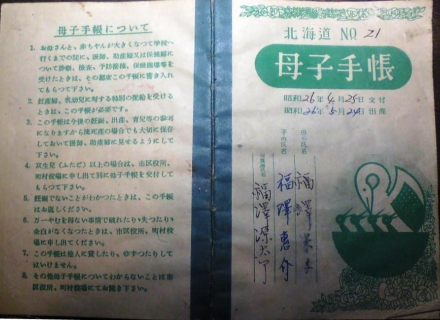 母子手帳について
1. お母さんと、赤ちやんが大きくなつて学校へ
行くまでの間に、医師、助産婦又は保健婦に
ついて診療、検査、予防接種、保健指導等を
受けたときは、その都度この手帳に書き入れ
てもらつて下さい。
2. 妊産婦、乳幼児に対する特別の配給を受ける
ときは、この手帳が必要です。
3. この手帳は今後の妊娠、出産、育児等の御参考
になりますから後々迄の場合でも大切に保存
しておいて医師、助産婦に見せるようにして下さい。
4. 双生児(ふたご)以上の場合は、市区役所、
町村役場に申し出て別に母子手帳を交付して
もらつて下さい。
5. 妊娠でないことがわかつたときは、この手帳
はお返しください。
6. 万一やむを得ない事情で破れたり失つたり
余白がなくなつたときは、市区役所、町村役
場に申し出てください。
7. この手帳は他人に貸したり、ゆずつたりして
はいけません。
8. その他母子手帳についてわからないことは市
区役所、町村役場にてお聞き下さい。
北海道 No 21
母子手帳
昭和26年4月25日交付
昭和26年5月24日出産
母の氏名 福澤
子の氏名 福澤惠介
福澤